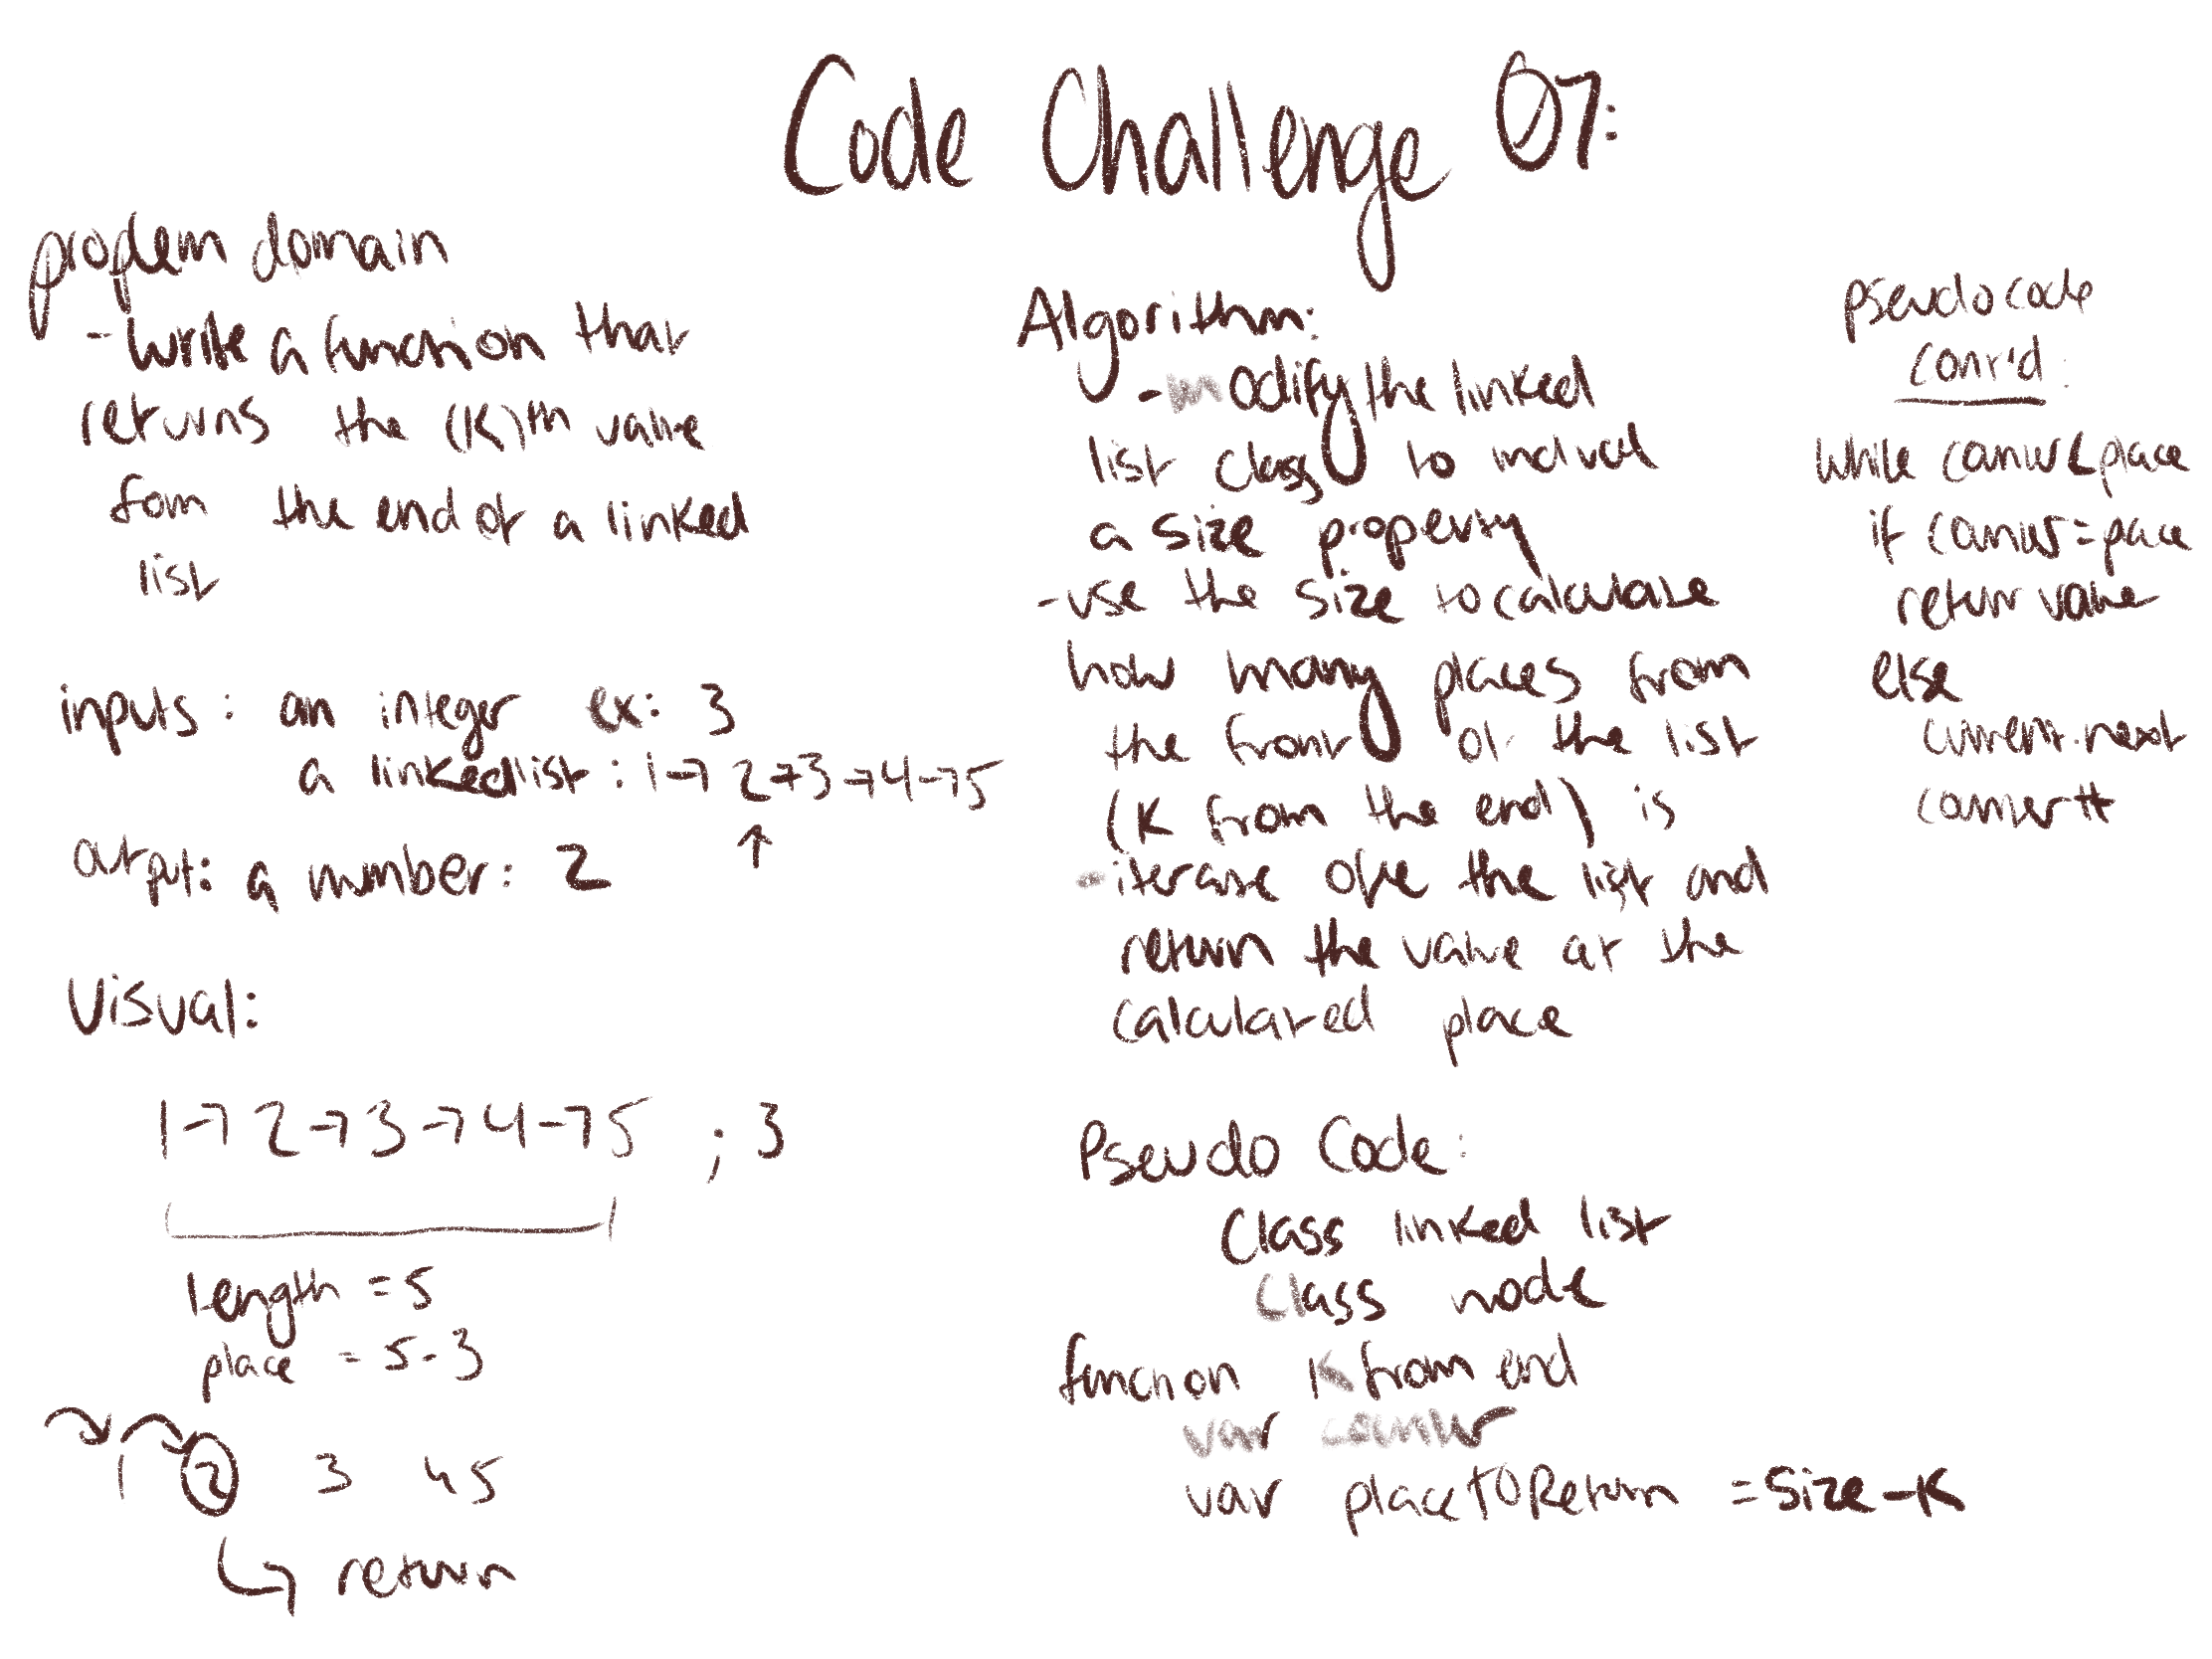 Code Challenge 07:
problem domain
- write a function that
returns the (K)th value
fom the end of a linked
list
inputs: an integer ex: 3
a linkedlist: 1→2→3→4→5
↑
output: a number: 2
Visual:
1→2→3→4→5 ; 3
length = 5
place = 5-3
1 2 3 4 5
↳ return
Algorithm:
- modify the linked
list class to
a size property
- use the size to calculate
how many places from
the front of the list
(K from the end) is
- iterate the list and
return the value at the
calculated place
Pseudo Code:
Class linked list
Class node
function K from end
var counter
var placeTOReturn = Size - K
pseudocode
cont'd:
while counter < place
if counter = pace
return value
else
current.next
counter++